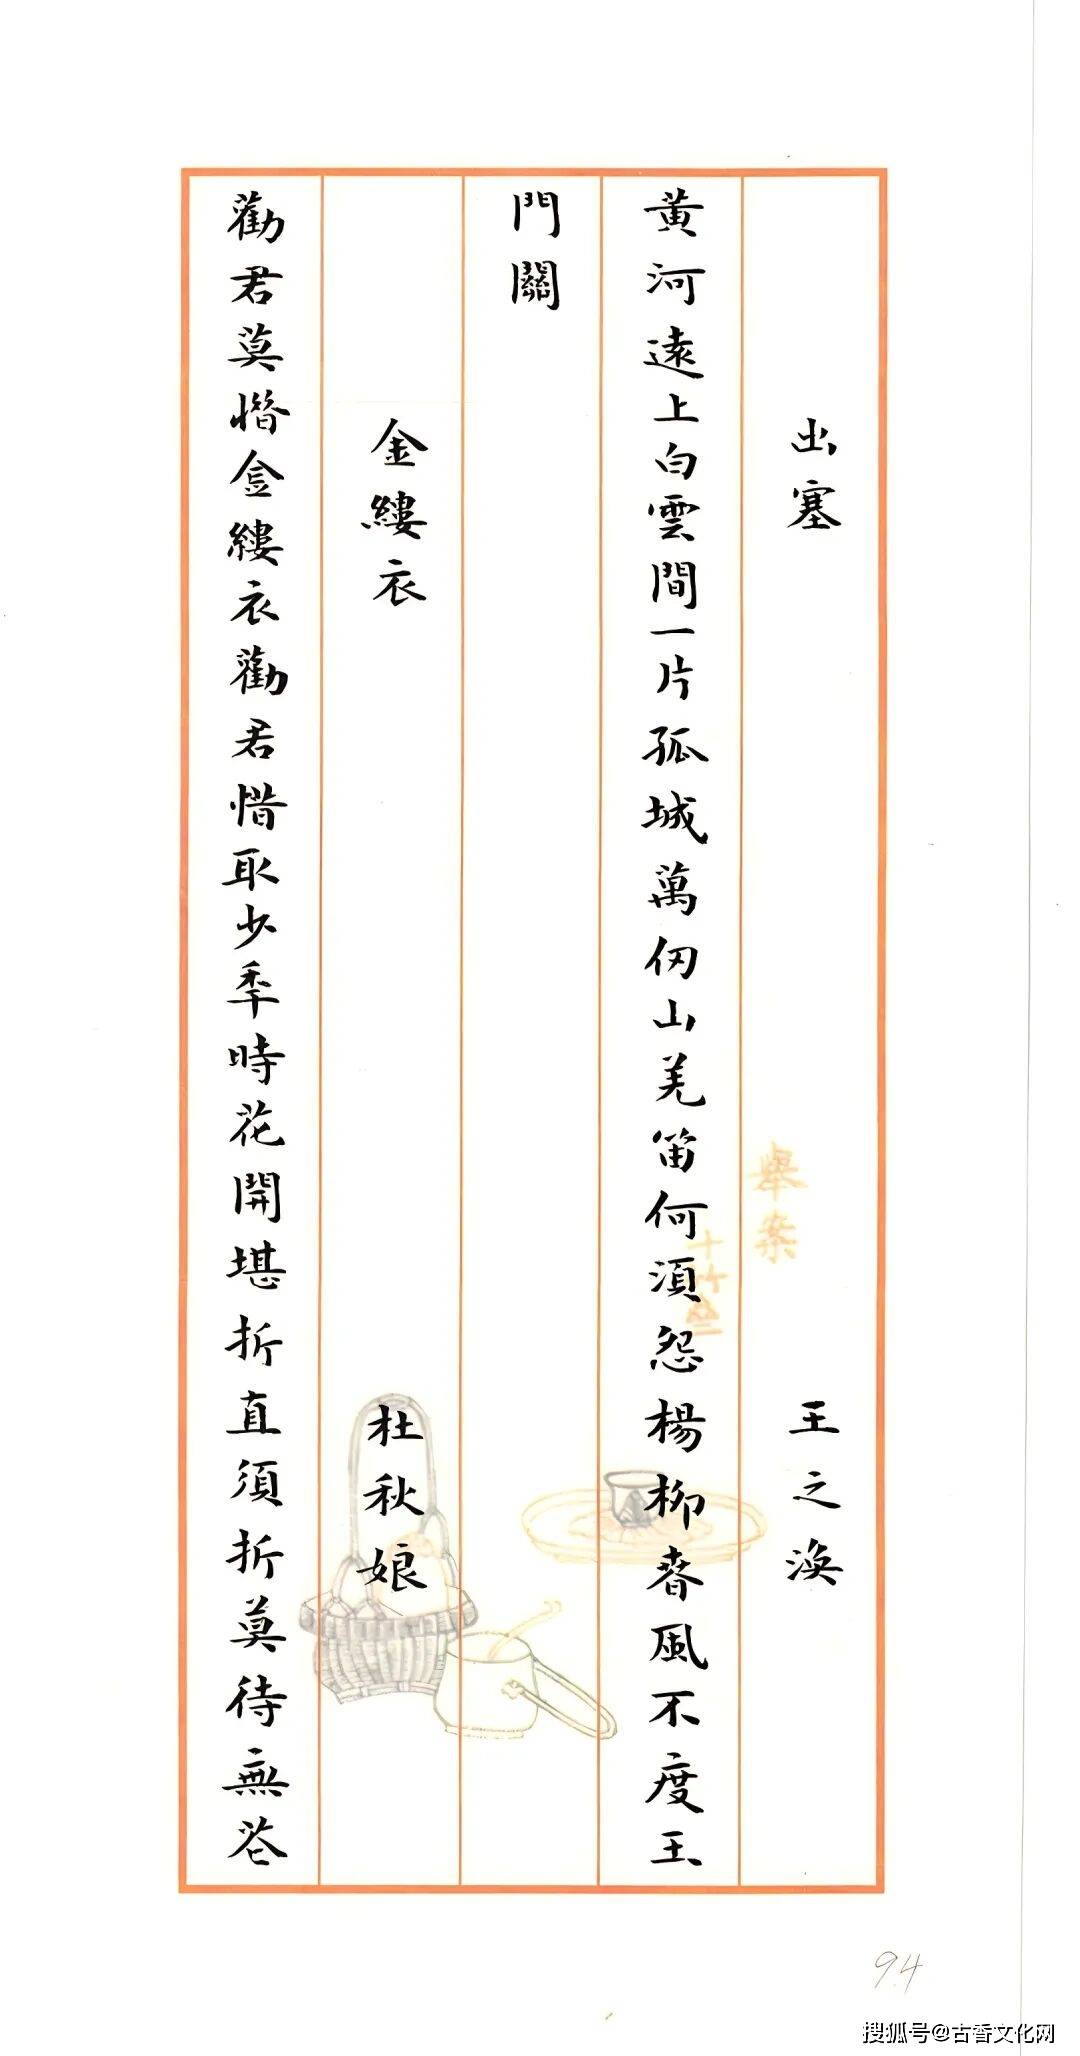 出塞 王之渙
黃河遠上白雲間一片孤城萬仞山羌笛何須怨楊柳春風不度玉
門關
金縷衣 杜秋娘
勸君莫惜金縷衣勸君惜取少年時花開堪折直須折莫待無花
舉案
十竹齋
94
搜狐号@古香文化网